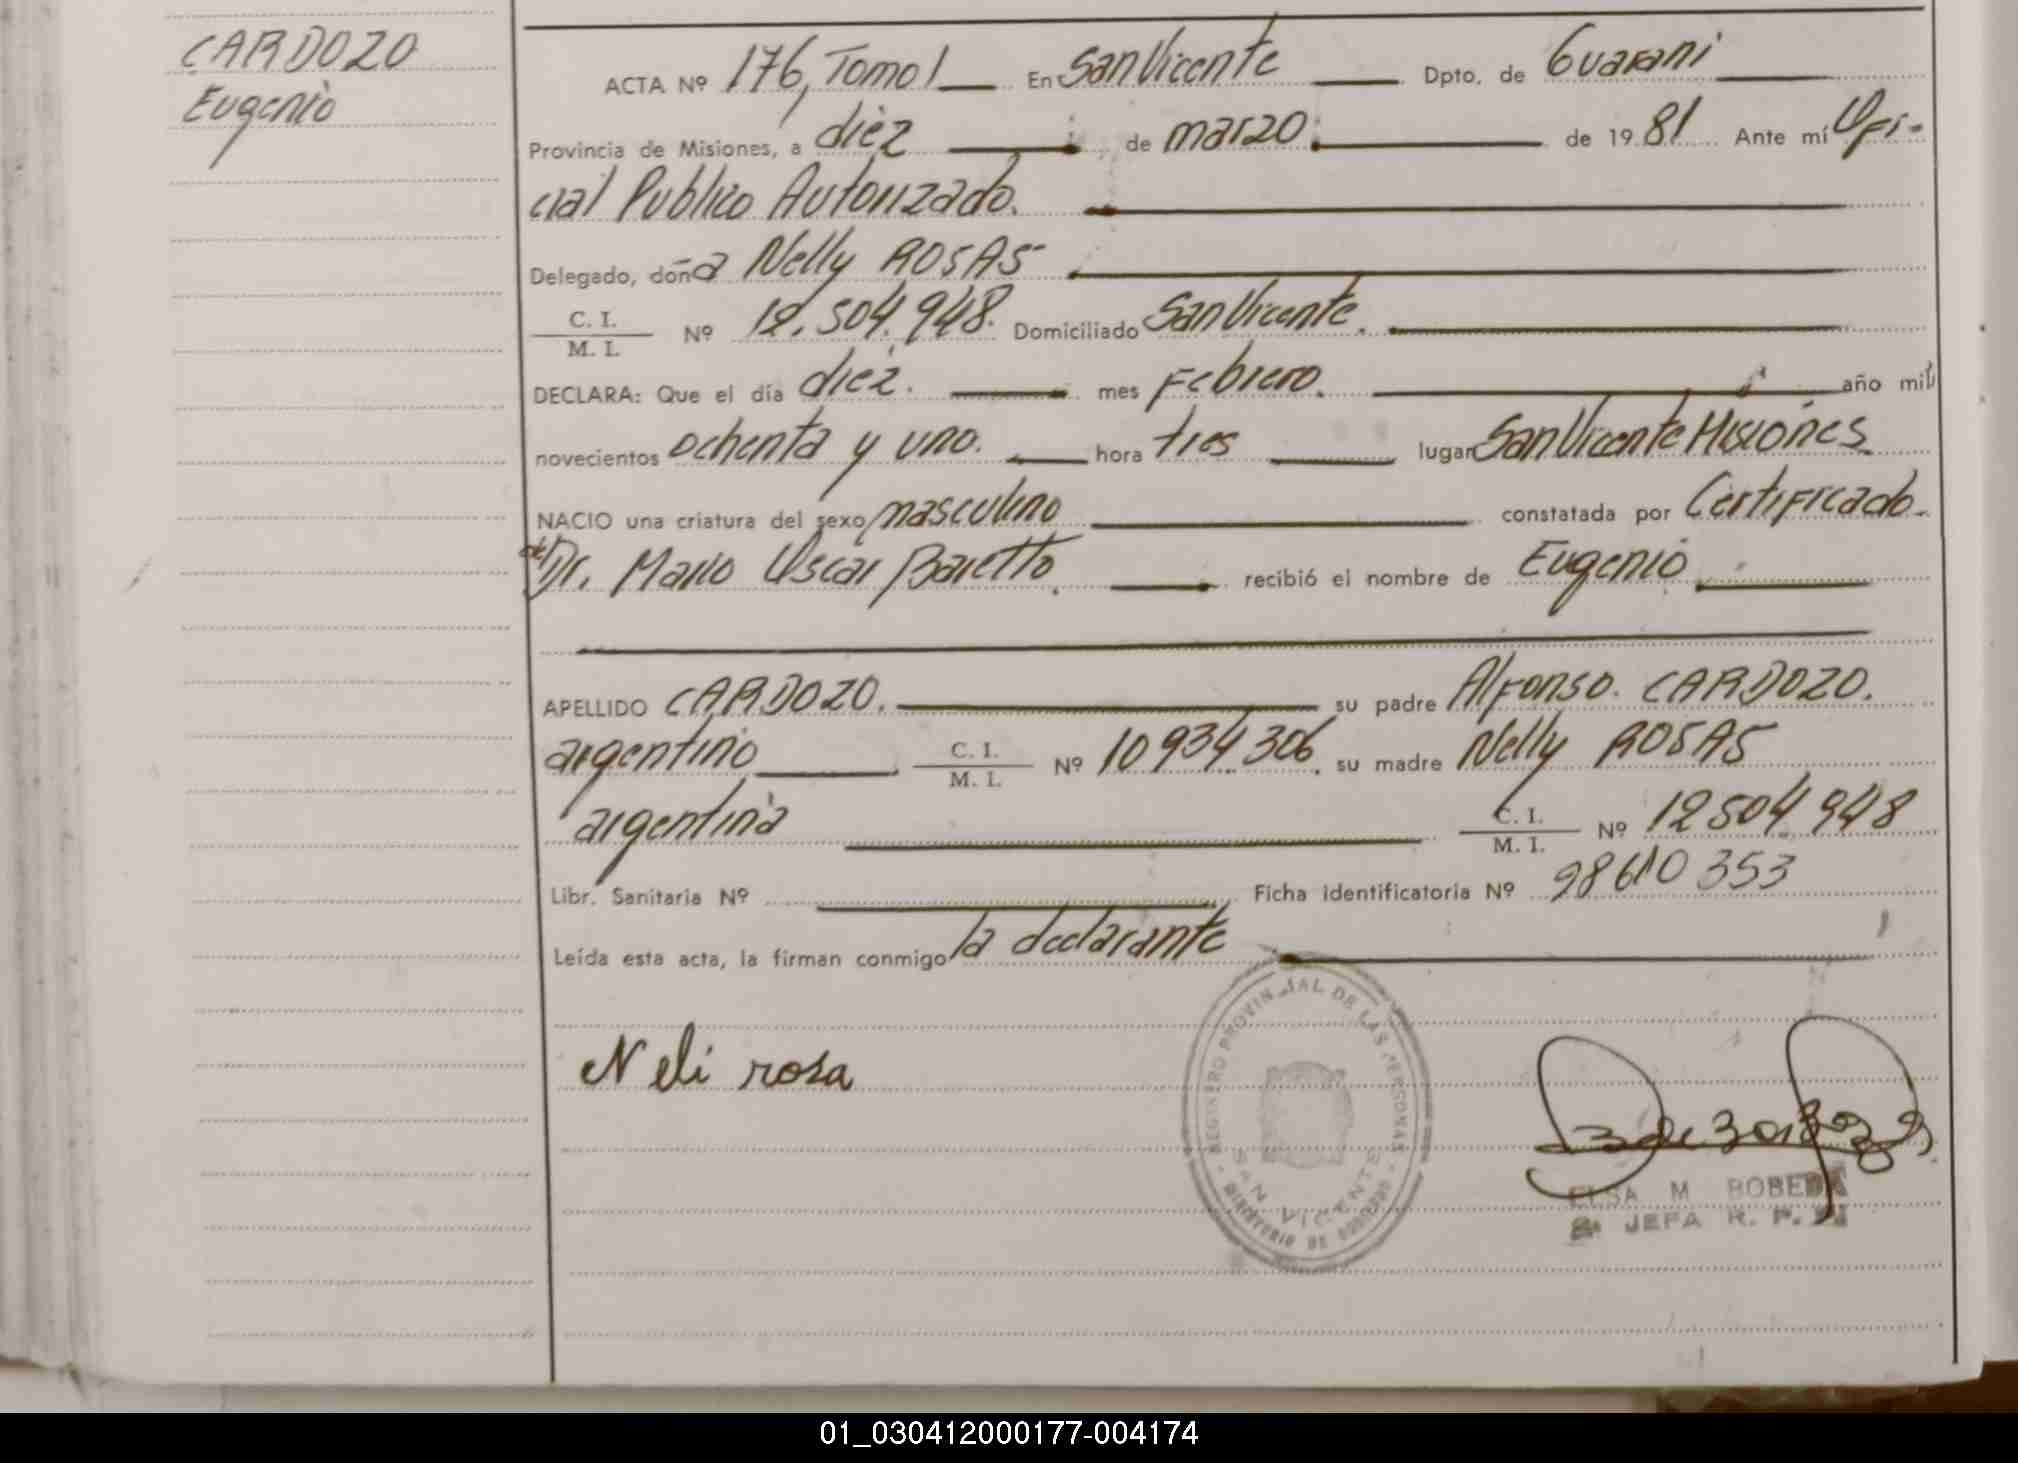 CARDOZO
Eugenio
ACTA Nº 176, Tomo 1 En San Vicente Dpto. de Guarani
Provincia de Misiones, a diez de marzo de 1981 Ante mí Ofi-
cial Publico Autorizado.
Delegado, doña Nelly ROSAS
C. I.
M. I. Nº 12.504.948. Domiciliado San Vicente.
DECLARA: Que el día diez. mes Febrero. año mil
novecientos ochenta y uno. hora tres lugar San Vicente Misiones
NACIO una criatura del sexo masculino constatada por Certificado.
del Dr. Mario Oscar Baretto. recibió el nombre de Eugenio
APELLIDO CARDOZO. su padre Alfonso. CARDOZO.
argentino C. I.
M. I. Nº 10934.306. su madre Nelly ROSAS
argentina C. I.
M. I. Nº 12504.948
Libr. Sanitaria Nº Ficha identificatoria Nº 28610353
Leída esta acta, la firman conmigo la declarante
Neli rosa
REGISTRO PROVINCIAL DE LAS PERSONAS
SAN VICENTE
MINISTERIO DE GOBIERNO
ELSA M BOBEDA
JEFA R. P.
01_030412000177-004174